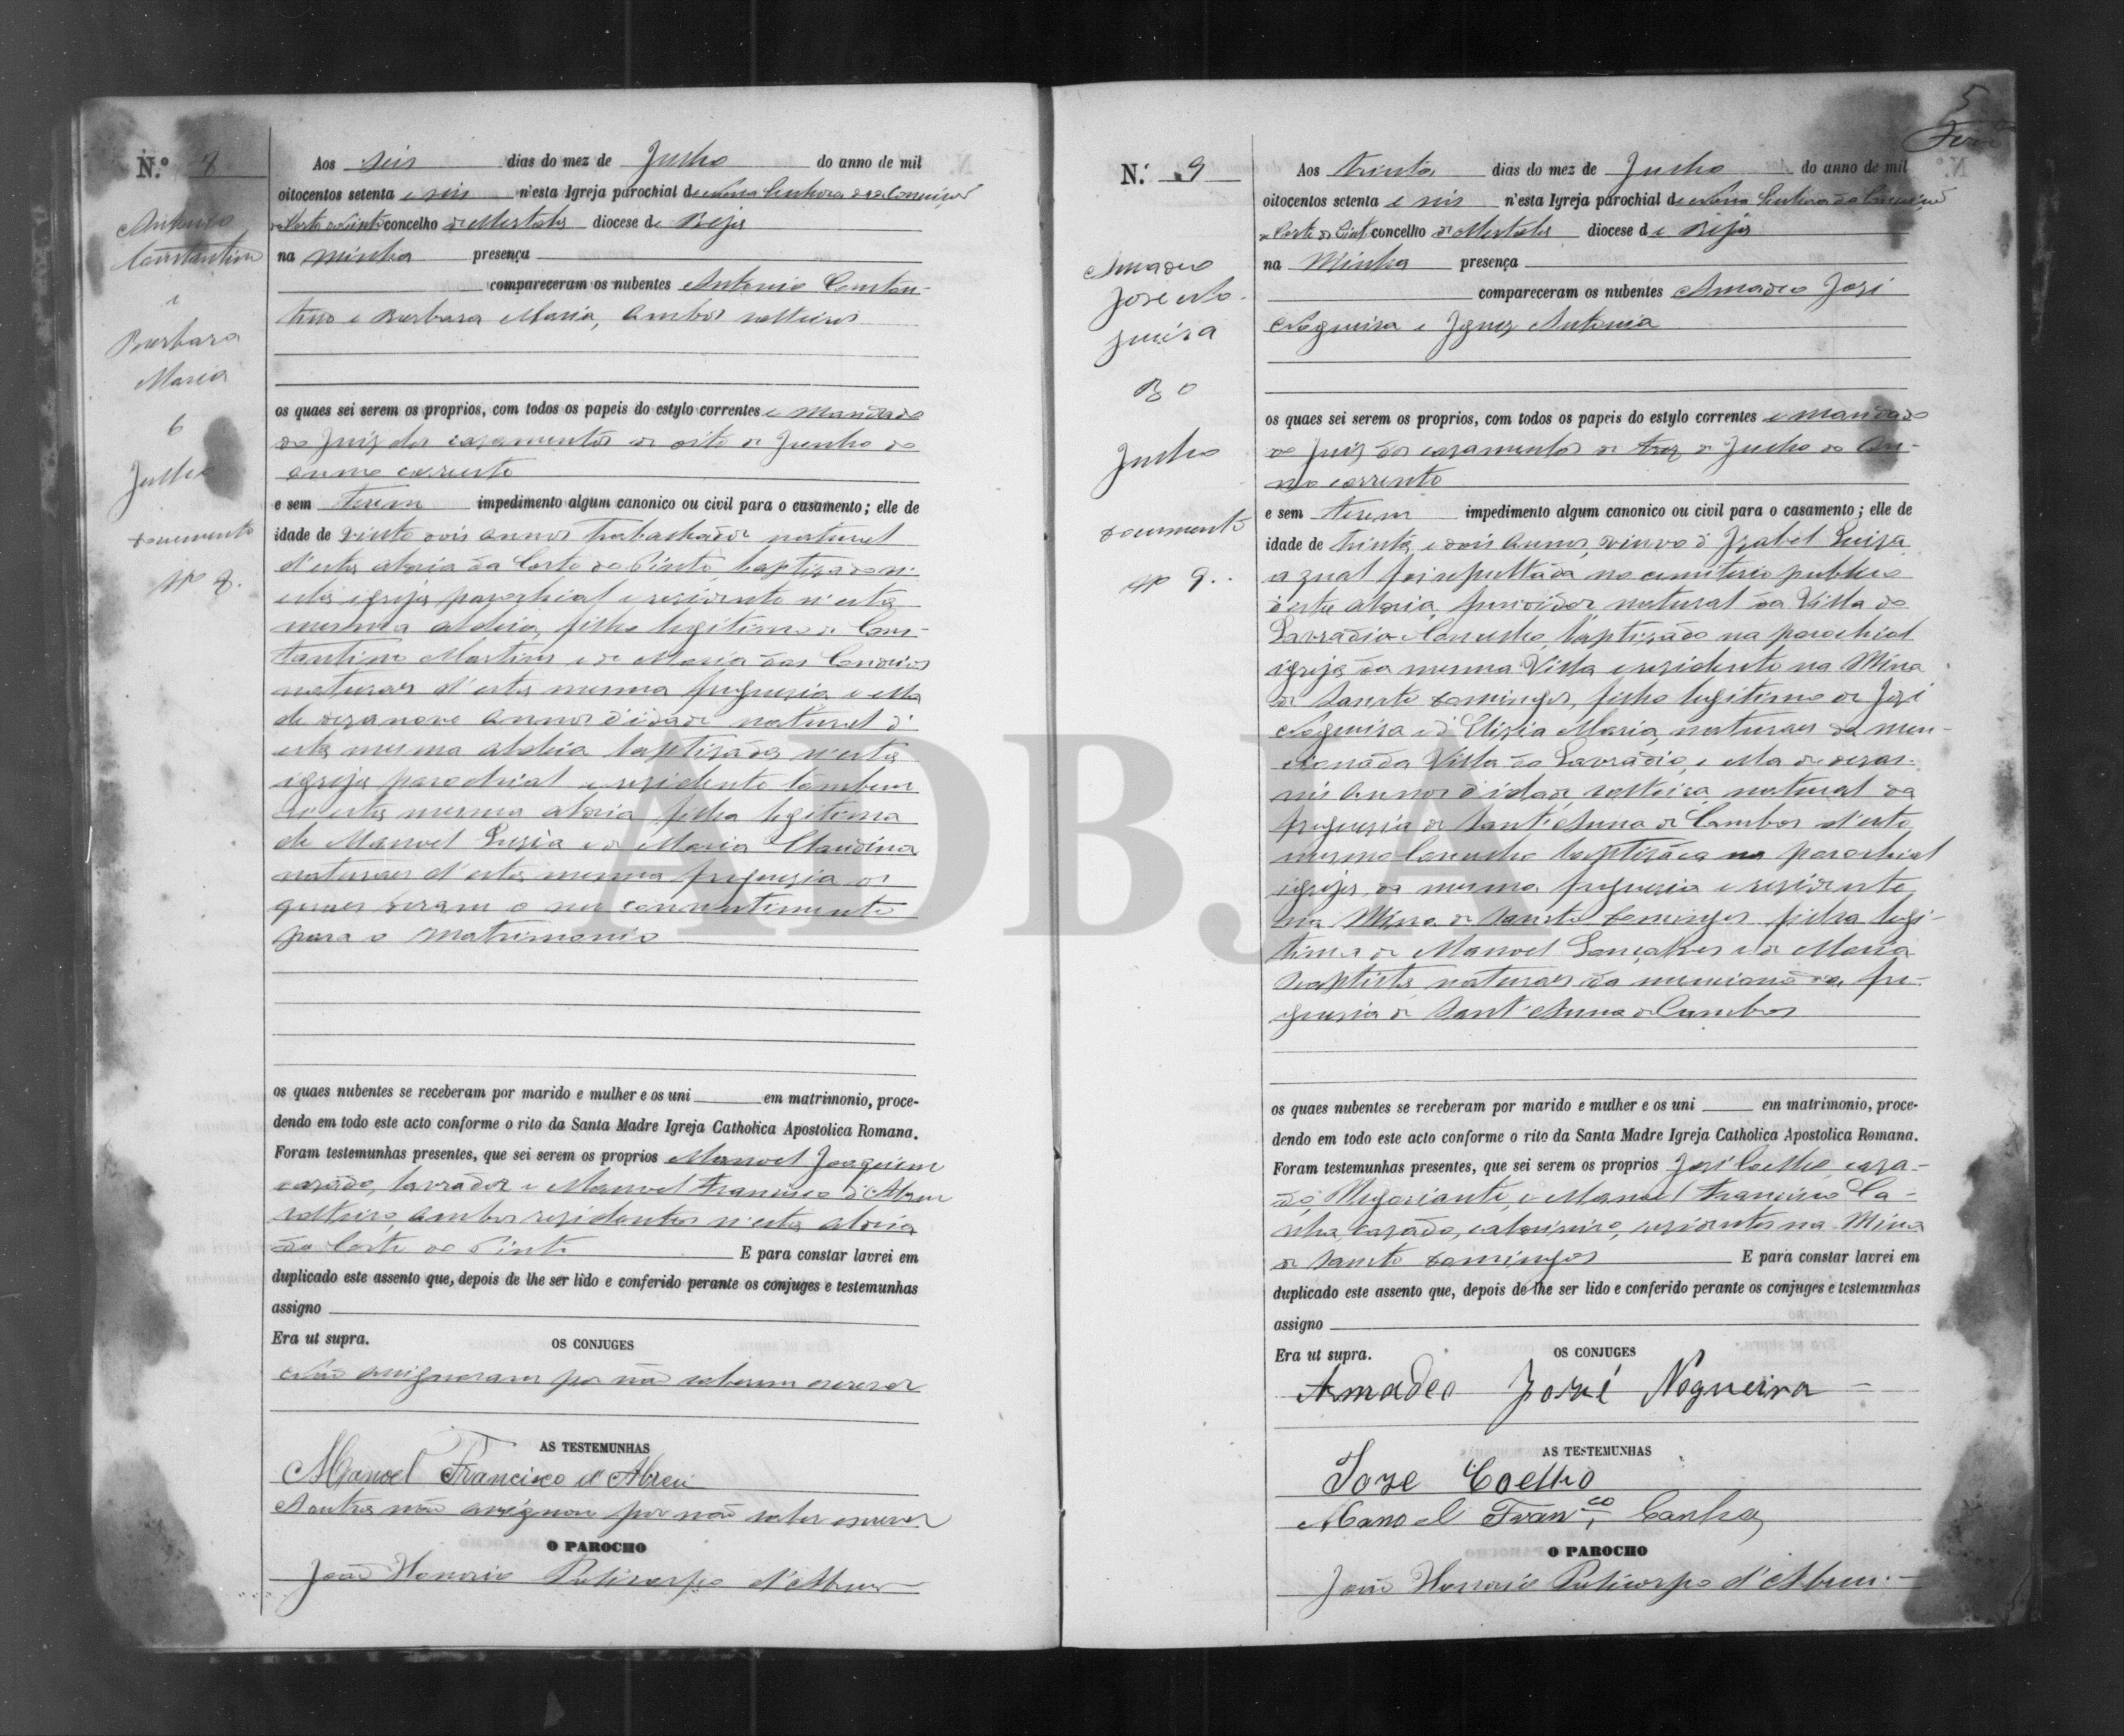 N.º 8
Antonio
Constantino
e
Barbara
Maria
6
Julho
Documento
Nº 8.
Aos seis dias do mez de Julho do anno de mil
oitocentos setenta e seis n'esta Igreja parochial de Nossa Senhora da Conceição
da Corte do Pinto concelho de Mertola diocese de Beja
na minha presença
compareceram os nubentes Antonio Constan-
tino e Barbara Maria, ambos solteiros
os quaes sei serem os proprios, com todos os papeis do estylo correntes e mandado
do Juiz dos casamentos de oito de Junho do
anno corrente
e sem terem impedimento algum canonico ou civil para o casamento; elle de
idade de vinte dois annos trabalhador natural
d'esta aldeia da Corte do Pinto baptisado n'
esta igreja parochial e residente n'esta
mesma aldeia, filho legitimo de Cons-
tantino Martins e de Maria das Candeias
naturaes d'esta mesma freguesia e ella
de desanove annos d'idade natural d'
esta mesma aldeia baptisada n'esta
igreja parochial e residente tambem
n'esta mesma aldeia filha legitima
de Manoel Luzia e de Maria Claudina
naturaes d'esta mesma freguesia os
quaes deram o seu consentimento
para o matrimonio
os quaes nubentes se receberam por marido e mulher e os uni em matrimonio, proce-
dendo em todo este acto conforme o rito da Santa Madre Igreja Catholica Apostolica Romana.
Foram testemunhas presentes, que sei serem os proprios Manoel Joaquim
casado, lavrador e Manoel Francisco d'Abreu
solteiro, ambos residentes n'esta aldeia
da Corte do Pinto E para constar lavrei em
duplicado este assento que, depois de lhe ser lido e conferido perante os conjuges e testemunhas
assigno
Era ut supra.
OS CONJUGES
Não assignaram por não saberem escrever
AS TESTEMUNHAS
Manoel Francisco d'Abreu
A outra não assignou por não saber escrever
O PAROCHO
João Honorio Policarpo d'Abreu
5
N.º 9
Amadeo
José No-
gueira
30
Julho
Documento
Nº 9.
Aos trinta dias do mez de Julho do anno de mil
oitocentos setenta e seis n'esta Igreja parochial de Nossa Senhora da Conceição
da Corte do Pinto concelho de Mertola diocese de Beja
na Minha presença
compareceram os nubentes Amadeo José
Nogueira e Ignez Antonia
os quaes sei serem os proprios, com todos os papeis do estylo correntes e mandado
do Juiz dos casamentos de trez de Julho do an-
no corrente
e sem terem impedimento algum canonico ou civil para o casamento; elle de
idade de trinta e dois annos, viuvo d'Izabel Luiza
a qual foi sepultada no cemiterio publico
d'esta aldeia, natural da Villa do
Lavradio Concelho, baptizado na parochial
igreja da mesma Villa e residente na Mina
de Sancto Domingos, filho legitimo de José
Nogueira e d'Elizia Maria, naturaes da men-
cionada Villa do Lavradio, e ella de desas-
seis annos d'idade, solteira, natural da
freguesia de Sant'Anna de Cambas d'este
mesmo Concelho baptizada na parochial
igreja da mesma freguesia e residente
na Mina de Sancto Domingos filha legi-
tima de Manoel Gonçalves e de Maria
Baptista naturaes da mencionada fre-
guesia de Sant'Anna de Cambas
os quaes nubentes se receberam por marido e mulher e os uni em matrimonio, proce-
dendo em todo este acto conforme o rito da Santa Madre Igreja Catholica Apostolica Romana.
Foram testemunhas presentes, que sei serem os proprios José Coelho, casa-
do, Negociante, e Manoel Francisco Ca-
nha, casado, residentes na Mina
de Sancto Domingos E para constar lavrei em
duplicado este assento que, depois de lhe ser lido e conferido perante os conjuges e testemunhas
assigno
Era ut supra.
OS CONJUGES
Amadeo José Nogueira
AS TESTEMUNHAS
Joze Coelho
Manoel Fran.co Canha
O PAROCHO
João Honorio Policarpo d'Abreu
ADBJA